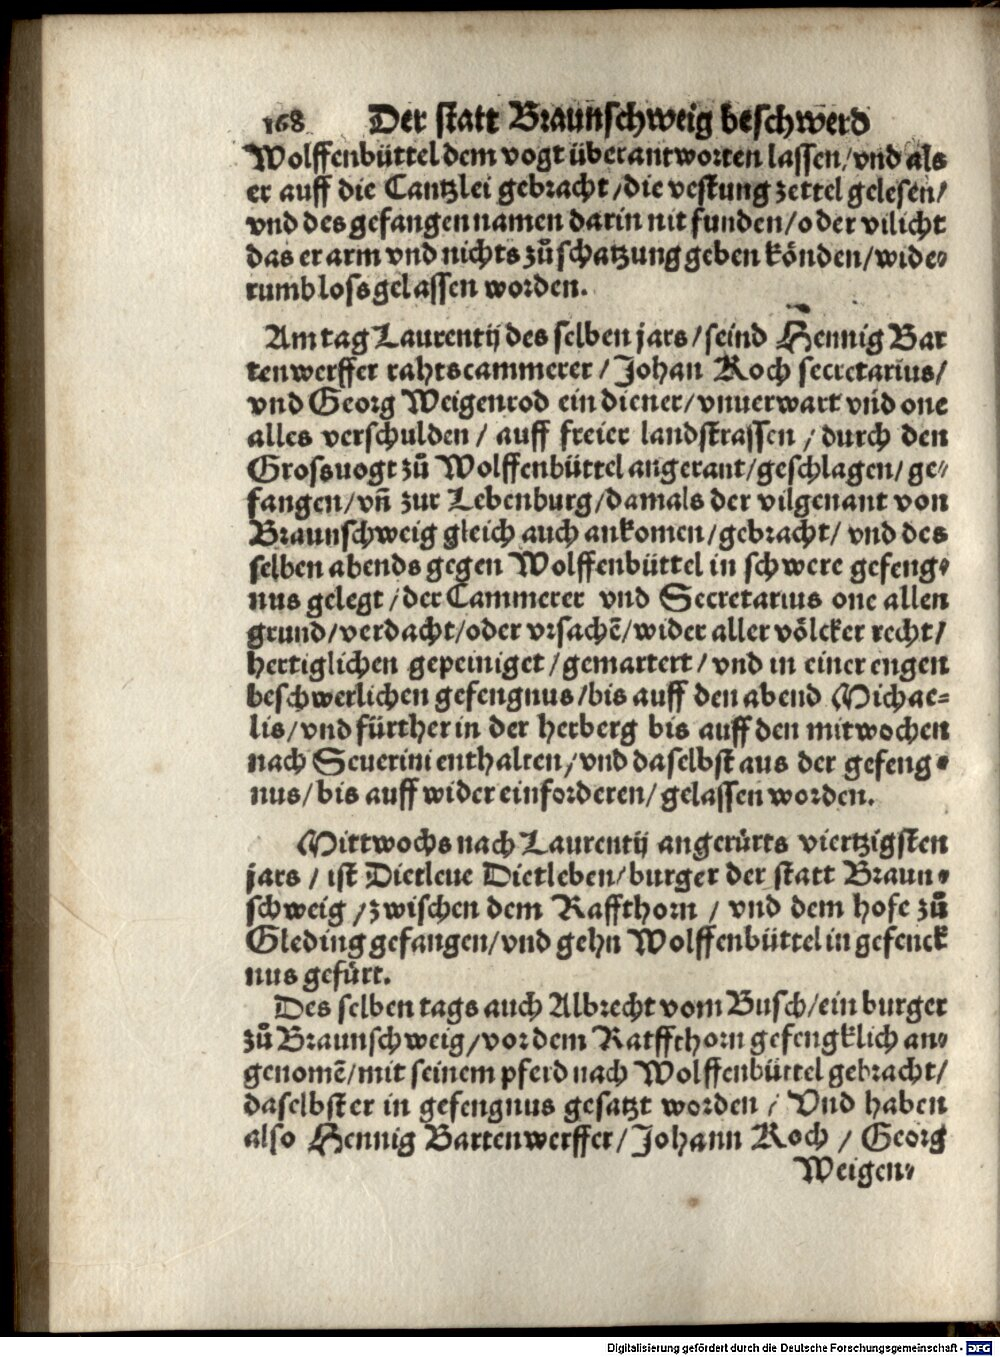 168 Der statt Braunschweig beschwerd
Wolffenbüttel dem vogt überantworten lassen/vnd als
er auff die Cantzlei gebracht/die vestung zettel gelesen/
vnd des gefangen namen darin nit funden/oder vilicht
das er arm vnd nichts zů schatzung geben könden/wide⸗
rumb loss gelassen worden.
Am tag Laurentij des selben jars/seind Hennig Bar
tenwerffer rahtscammerer/Johan Koch secretarius/
vnd Georg Weigenrod ein diener/vnuerwart vnd one
alles verschulden/auff freier landstrassen/durch den
Grossuogt zů Wolffenbüttel angerant/geschlagen/ge⸗
fangen/vñ zur Lebenburg/damals der vilgenant von
Braunschweig gleich auch ankomen/gebracht/vnd des
selben abends gegen Wolffenbüttel in schwere gefeng⸗
nus gelegt/der Cammerer vnd Secretarius one allen
grund/verdacht/oder vrsachẽ/wider aller völcker recht/
hertiglichen gepeiniget/gemartert/vnd in einer engen
beschwerlichen gefengnus/bis auff den abend Michae⸗
lis/vnd fürther in der herberg bis auff den mitwochen
nach Seuerini enthalten/vnd daselbst aus der gefeng⸗
nus/bis auff wider einforderen/gelassen worden.
Mittwochs nach Laurentij angerürts viertzigsten
jars/ist Dietleue Dietleben/burger der statt Braun⸗
schweig/zwischen dem Raffthorn/vnd dem hofe zů
Gleding gefangen/vnd gehn Wolffenbüttel in gefenck
nus gefürt.
Des selben tags auch Albrecht vom Busch/ein burger
zů Braunschweig/vor dem Ratffthorn gefengklich an⸗
genomẽ/mit seinem pferd nach Wolffenbüttel gebracht/
daselbst er in gefengnus gesatzt worden/Vnd haben
also Hennig Bartenwerffer/Johann Koch/Georg
Weigen⸗
Digitalisierung gefördert durch die Deutsche Forschungsgemeinschaft - DFG